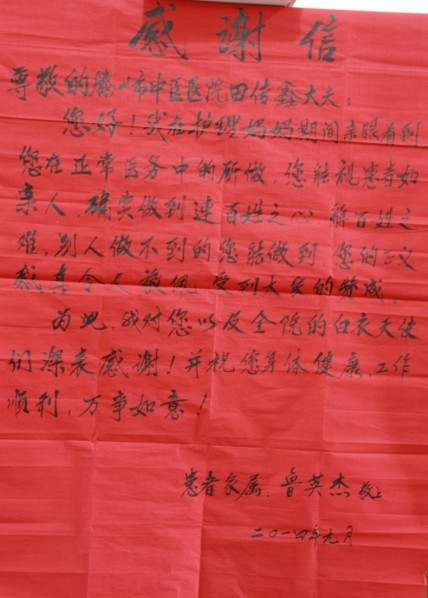 感谢信
尊敬的滕州市中医医院田传鑫大夫:
您好!我在护理妈妈期间亲眼看到
您在正常医务中的所做,您能视患者如
亲人,确实做到连百姓之心 解百姓之
难,别人做不到的您能做到 您的
真令人敬佩,受到大家的赞成,
为此,我对您以及全院的白衣天使
们深表感谢!并祝您身体健康,工作
顺利,万事如意!
患者家属:鲁英杰 敬上
二〇一四年九月